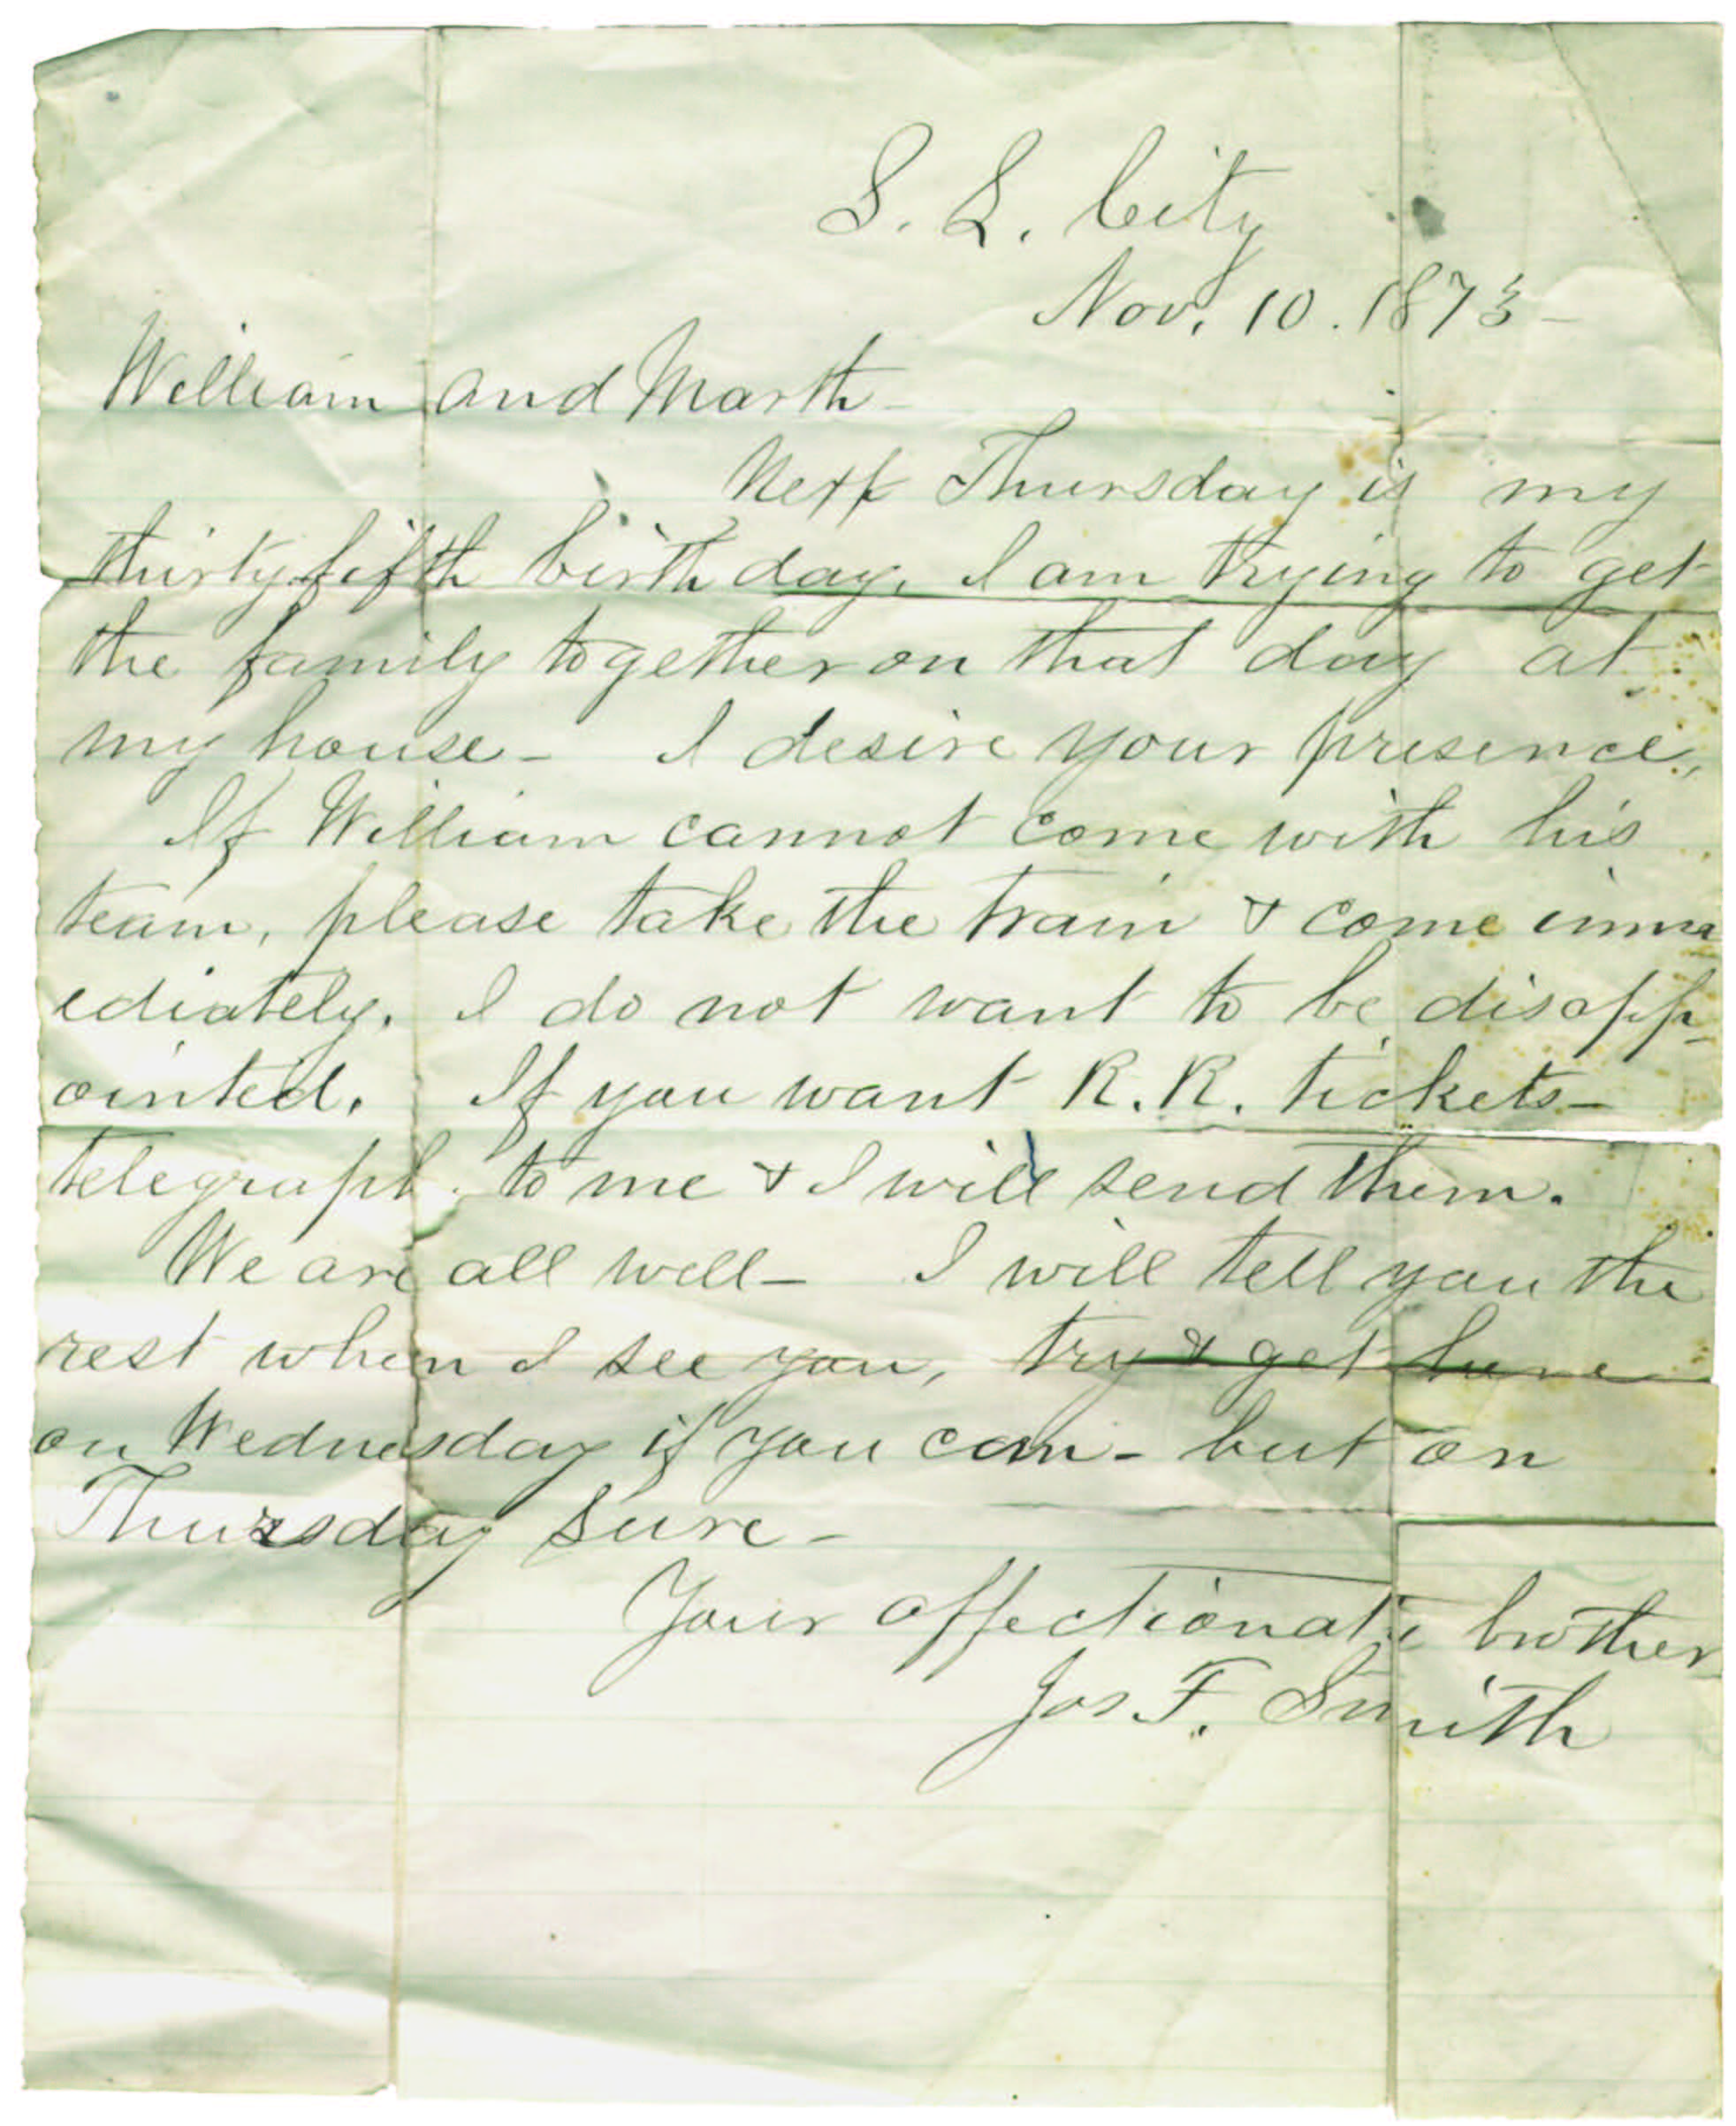 S. L. City
Nov. 10. 1873-
William and Marth-
Next Thursday is my
thirty fifth birth day. I am trying to get
the family together on that day at
my house- I desire your presence,
If William cannot come with his
team, please take the train & come imm
ediately. I do not want to be disapp-
ointed. If you want R. R. tickets-
telegraph to me & I will send them.
We are all well- I will tell you the
rest when I see you, try & get here
on Wednesday if you can- but on
Thursday sure-
Your affectionate brother
Jos F. Smith